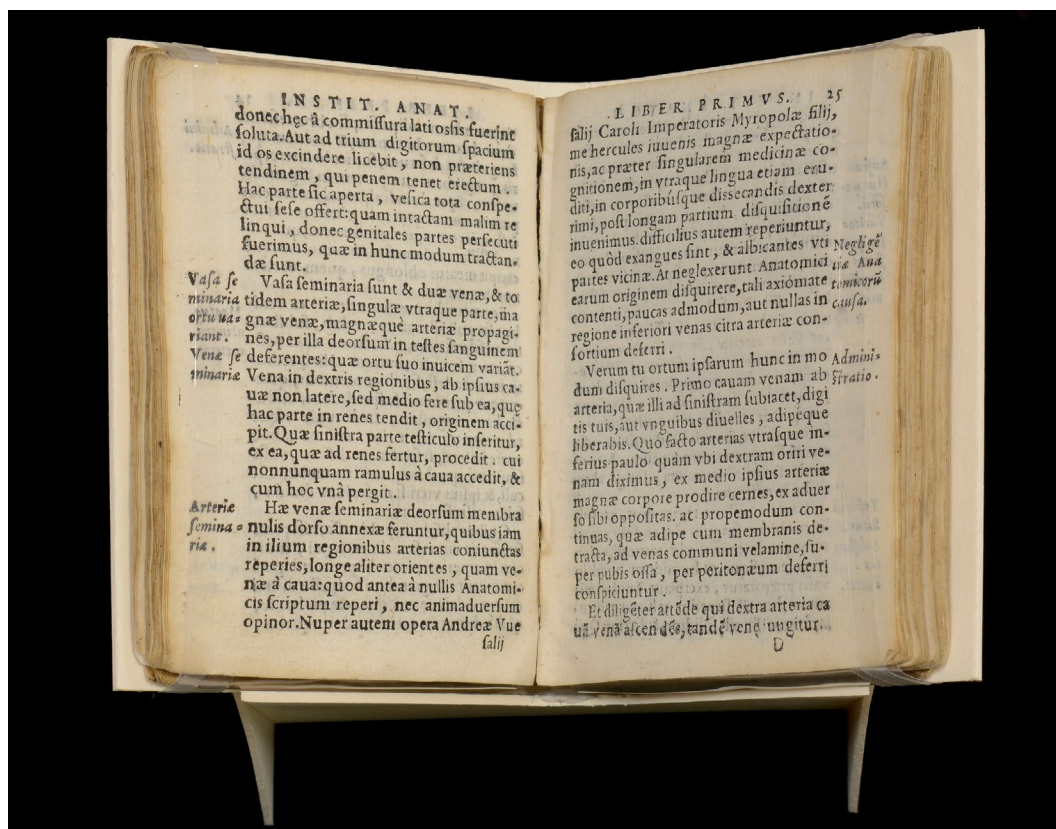 INSTIT. ANAT.
donec hęc à commissura lati ossis fuerint
soluta. Aut ad trium digitorum spacium
id os excindere licebit, non præteriens
tendinem, qui penem tenet erectum.
Hac parte sic aperta, vesica tota conspe-
ctui sese offert: quam intactam malim re
linqui, donec genitales partes persecuti
fuerimus, quæ in hunc modum tractan-
dæ sunt.
Vasa se
minaria
ortu ua-
riant.
Vasa seminaria sunt & duæ venæ, & to
tidem arteriæ, singulæ vtraque parte, ma
gnæ venæ, magnæque arteriæ propagi-
nes, per illa deorsum in testes sanguinem
Venæ se
minariæ
deferentes: quæ ortu suo inuicem variāt.
Vena in dextris regionibus, ab ipsius ca-
uæ non latere, sed medio fere sub ea, quę
hac parte in renes tendit, originem acci-
pit. Quæ sinistra parte testiculo inseritur,
ex ea, quæ ad renes fertur, procedit. cui
nonnunquam ramulus à caua accedit, &
cum hoc vnâ pergit.
Arteriæ
semina-
riæ.
Hæ venæ seminariæ deorsum membra
nulis dorso annexæ feruntur, quibus iam
in ilium regionibus arterias coniunctas
reperies, longe aliter orientes, quam ve-
næ à caua: quod antea à nullis Anatomi-
cis scriptum reperi, nec animaduersum
opinor. Nuper autem opera Andreæ Vue
salij
LIBER PRIMVS. 25
salij Caroli Imperatoris Myropolæ filij,
me hercules iuuenis magnæ expectatio-
nis, ac præter singularem medicinæ co-
gnitionem, in vtraque lingua etiam eru-
diti, in corporibúsque dissecandis dexter
rimi, post longam partium disquisitionē
inuenimus. difficilius autem reperiuntur,
eo quòd exangues sint, & albicantes vti
partes vicinæ. At neglexerunt Anatomici
earum originem disquirere, tali axiomate
contenti, paucas admodum, aut nullas in
regione inferiori venas citra arteriæ con-
sortium deferri.
Negligē
tiæ Ana
tomicorū
causa.
Verum tu ortum ipsarum hunc in mo
dum disquires. Primo cauam venam ab
arteria, quæ illi ad sinistram subiacet, digi
tis tuis, aut vnguibus diuelles, adipéque
liberabis. Quo facto arterias vtrasque in-
ferius paulo quàm vbi dextram oriri ve-
nam diximus, ex medio ipsius arteriæ
magnæ corpore prodire cernes, ex aduer
so sibi oppositas. ac propemodum con-
tinuas, quæ adipe cum membranis de-
tracta, ad venas communi velamine, su-
per pubis ossa, per peritonæum deferri
conspiciuntur.
Admini-
stratio.
Et diligēter attēde qui dextra arteria ca
uā venā ascendēs, tandē venę iungitur.
D